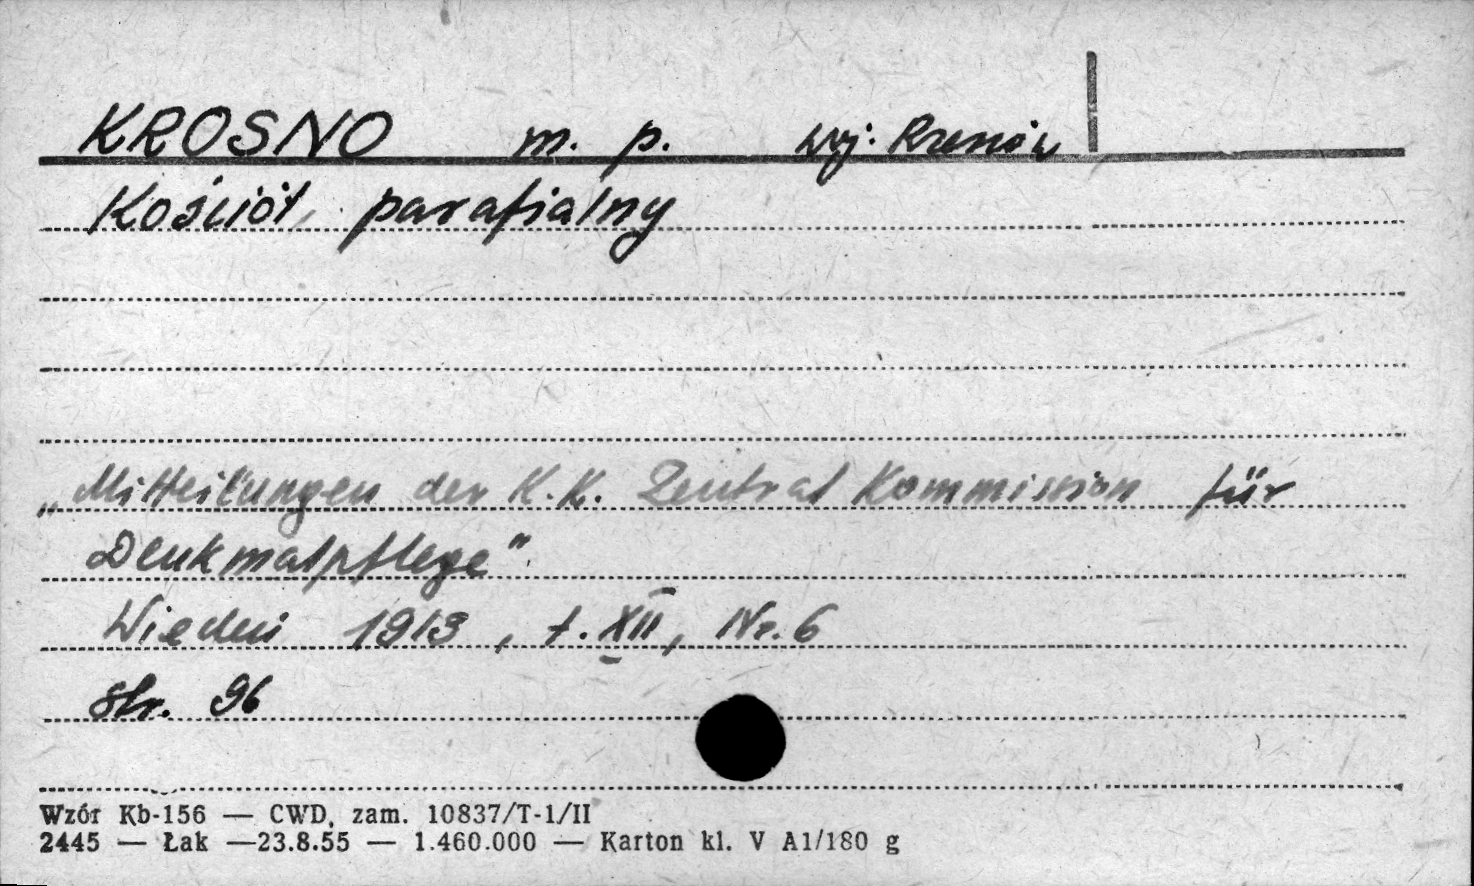 KROSNO m. p. woj. Rzeszów
Kościół parafialny
„Mitteilungen der K.K. Zentral Kommission für
Denkmalpflege"
Wiedeń 1913, t. XII, Nr. 6
str. 96
Wzór Kb-156 — CWD, zam. 10837/T-1/II
2445 — Łak —23.8.55 — 1.460.000 — Karton kl. V A1/180 g